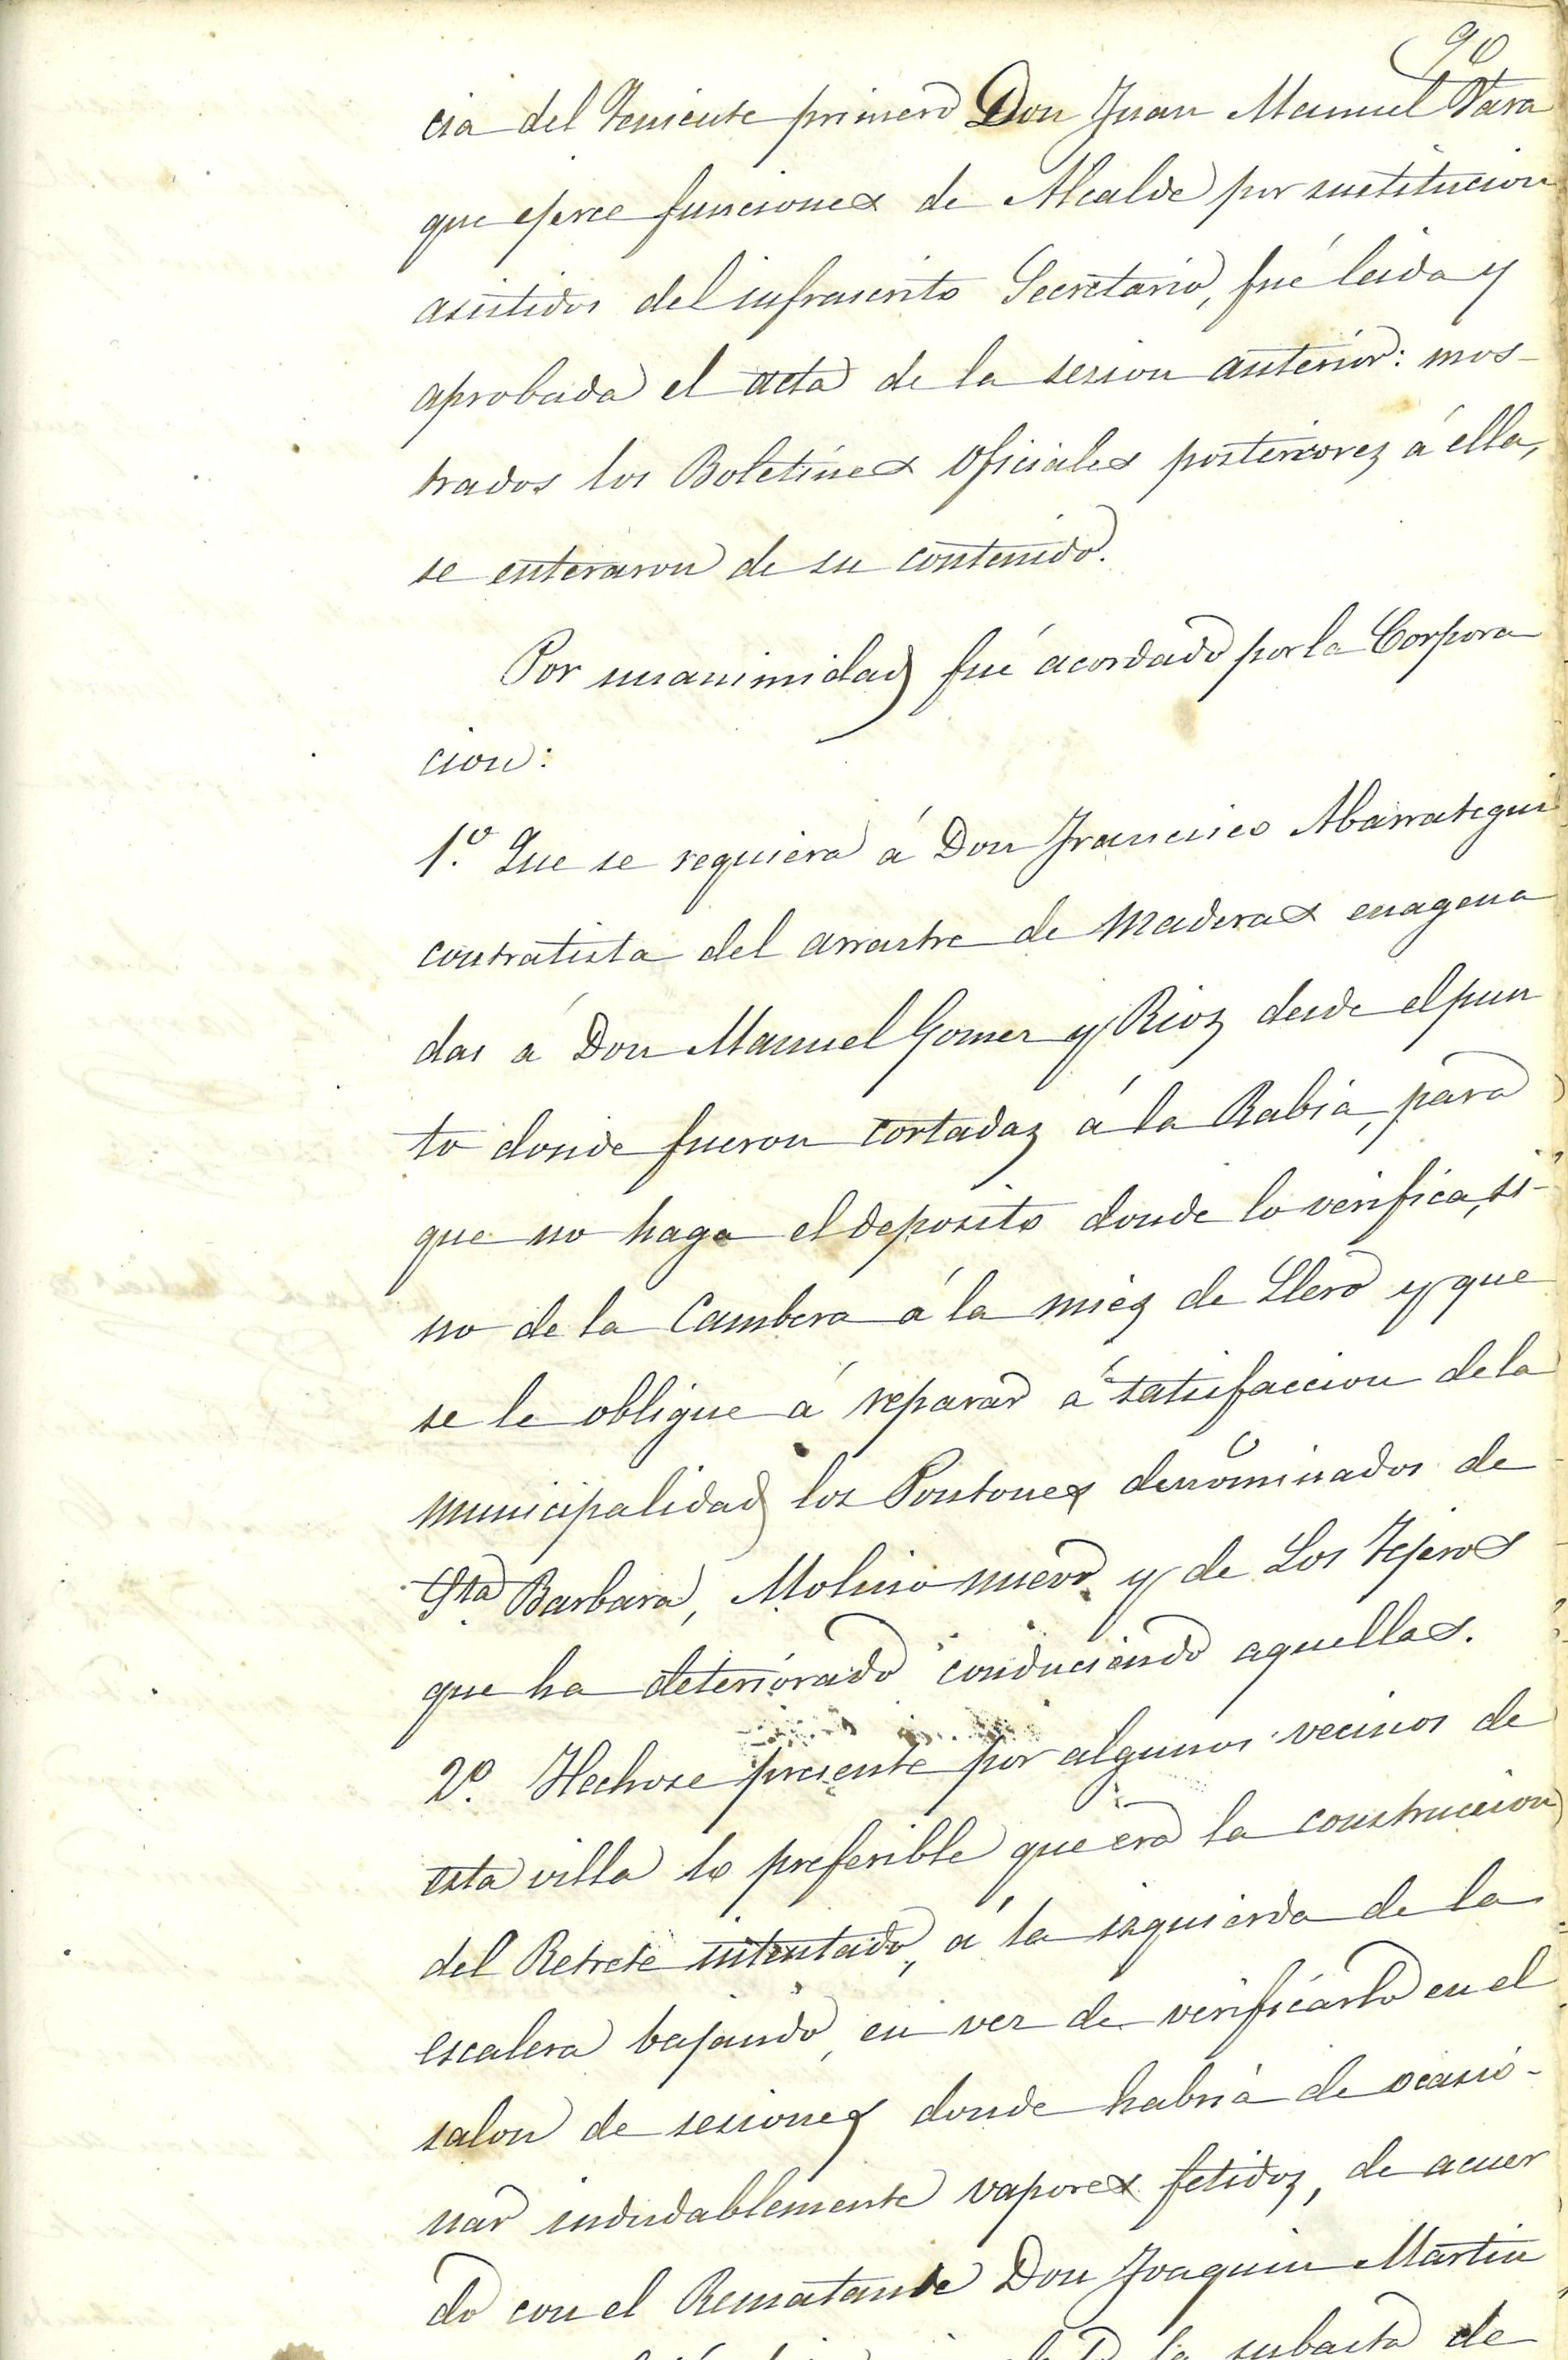 90
cia del Teniente primero Don Juan Manuel Vara
que ejerce funciones de Alcalde por sustitucion
asistidos del infrascrito Secretario, fué leida y
aprobada el acta de la sesion anterior: mos-
trados los Boletines Oficiales posteriores á ella,
se enteraron de su contenido.
Por unanimidad fué acordado por la Corpora
cion:
1.º Que se requiera á Don Francisco Abarrategui
contratista del arrastre de maderas enagena
das á Don Manuel Gomez y Rioz desde el pun
to donde fueron cortadas á la Rabia, para
que no haga el deposito donde lo verifica, si-
no de la Cambera á la miez de Llero y que
se le obligue á reparar á satisfaccion de la
municipalidad los Pontones denominados de
Sta Barbara, Molino nuevo y de Los Tejeros
que ha deteriorado conduciendo aquellas.
2º. Hechose presente por algunos vecinos de
esta villa lo preferible que era la construccion
del Retrete intentado, á la izquierda de la
escalera bajando, en vez de verificarlo en el
salon de sesiones donde habria de ocasio-
nar indudablemente vapores fetidos, de acuer
do con el Rematante Don Joaquin Martin
la subasta de